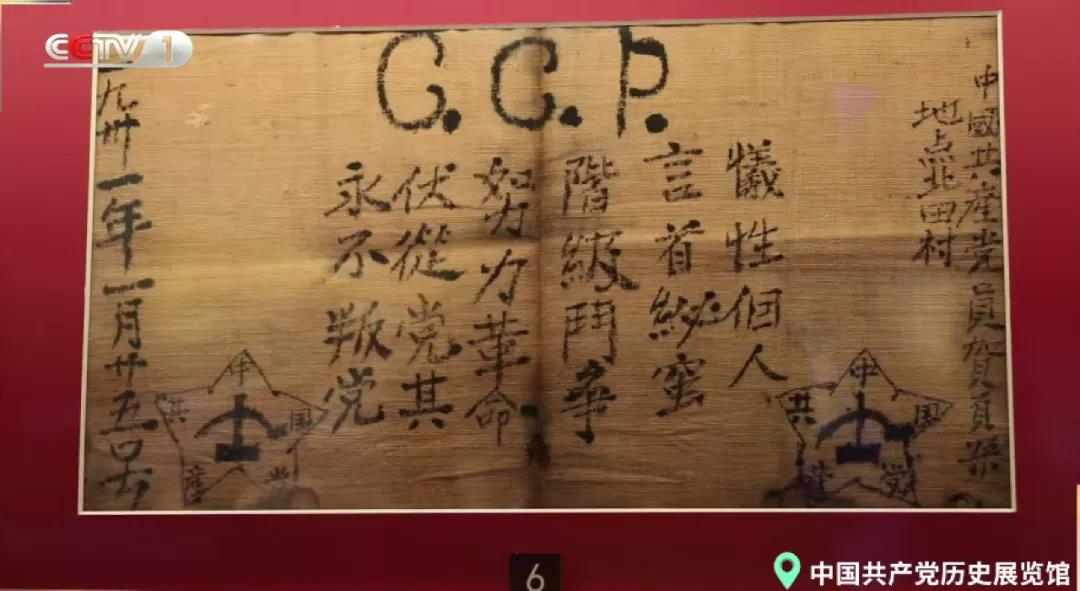 CCTV 1
C.C.P.
中國共產党員賀頁朶
地点北田村
犧性個人
言首秘蜜
階級鬥爭
努力革命
伏從党其
永不叛党
一九卅一年一月廿五号
中国共產党
中国共產党
6
中国共产党历史展览馆